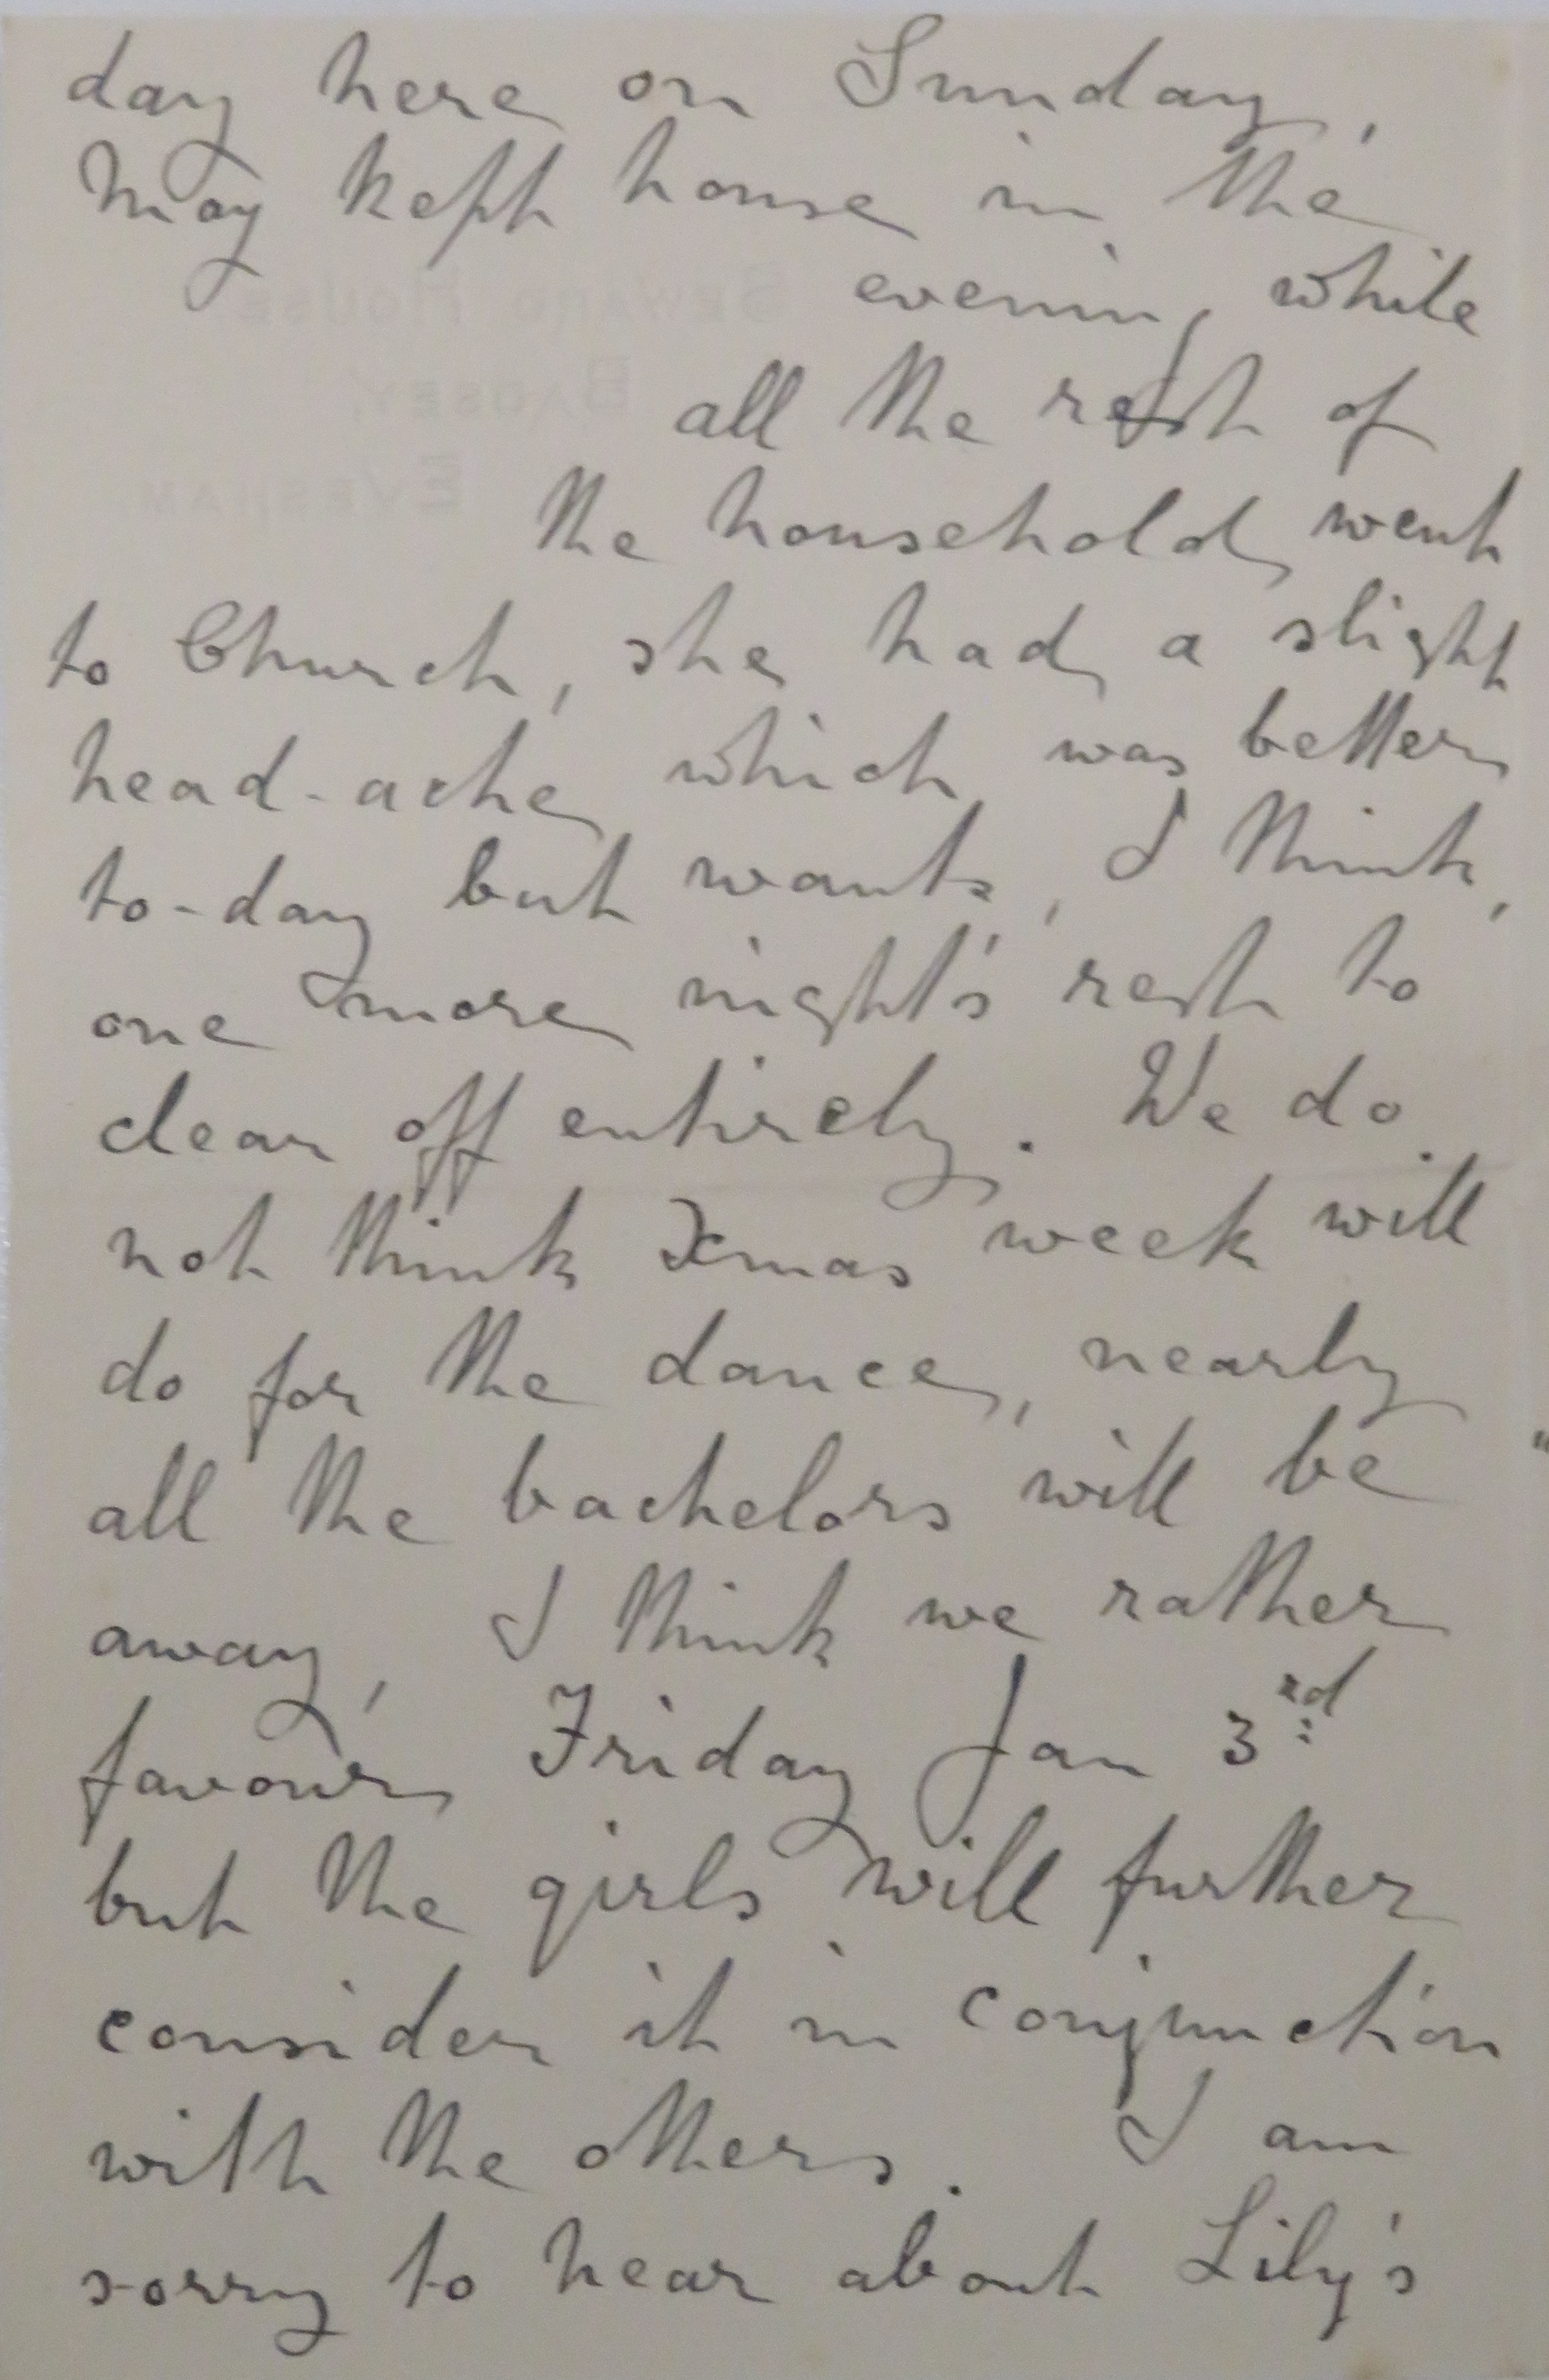 day here on Sunday,
May kept house in the
evening while
all the rest of
the household went
to Church, she had a slight
head-ache which was better
to-day but wants, I think,
one more night's rest to
clear off entirely. We do
not think Xmas week will
do for the dance, nearly
all the bachelors will be
away, I think we rather
favour Friday Jan 3rd
but the girls will further
consider it in conjunction
with the others. I am
sorry to hear about Lily's
SEWARD HOUSE,
BADSEY,
EVESHAM.